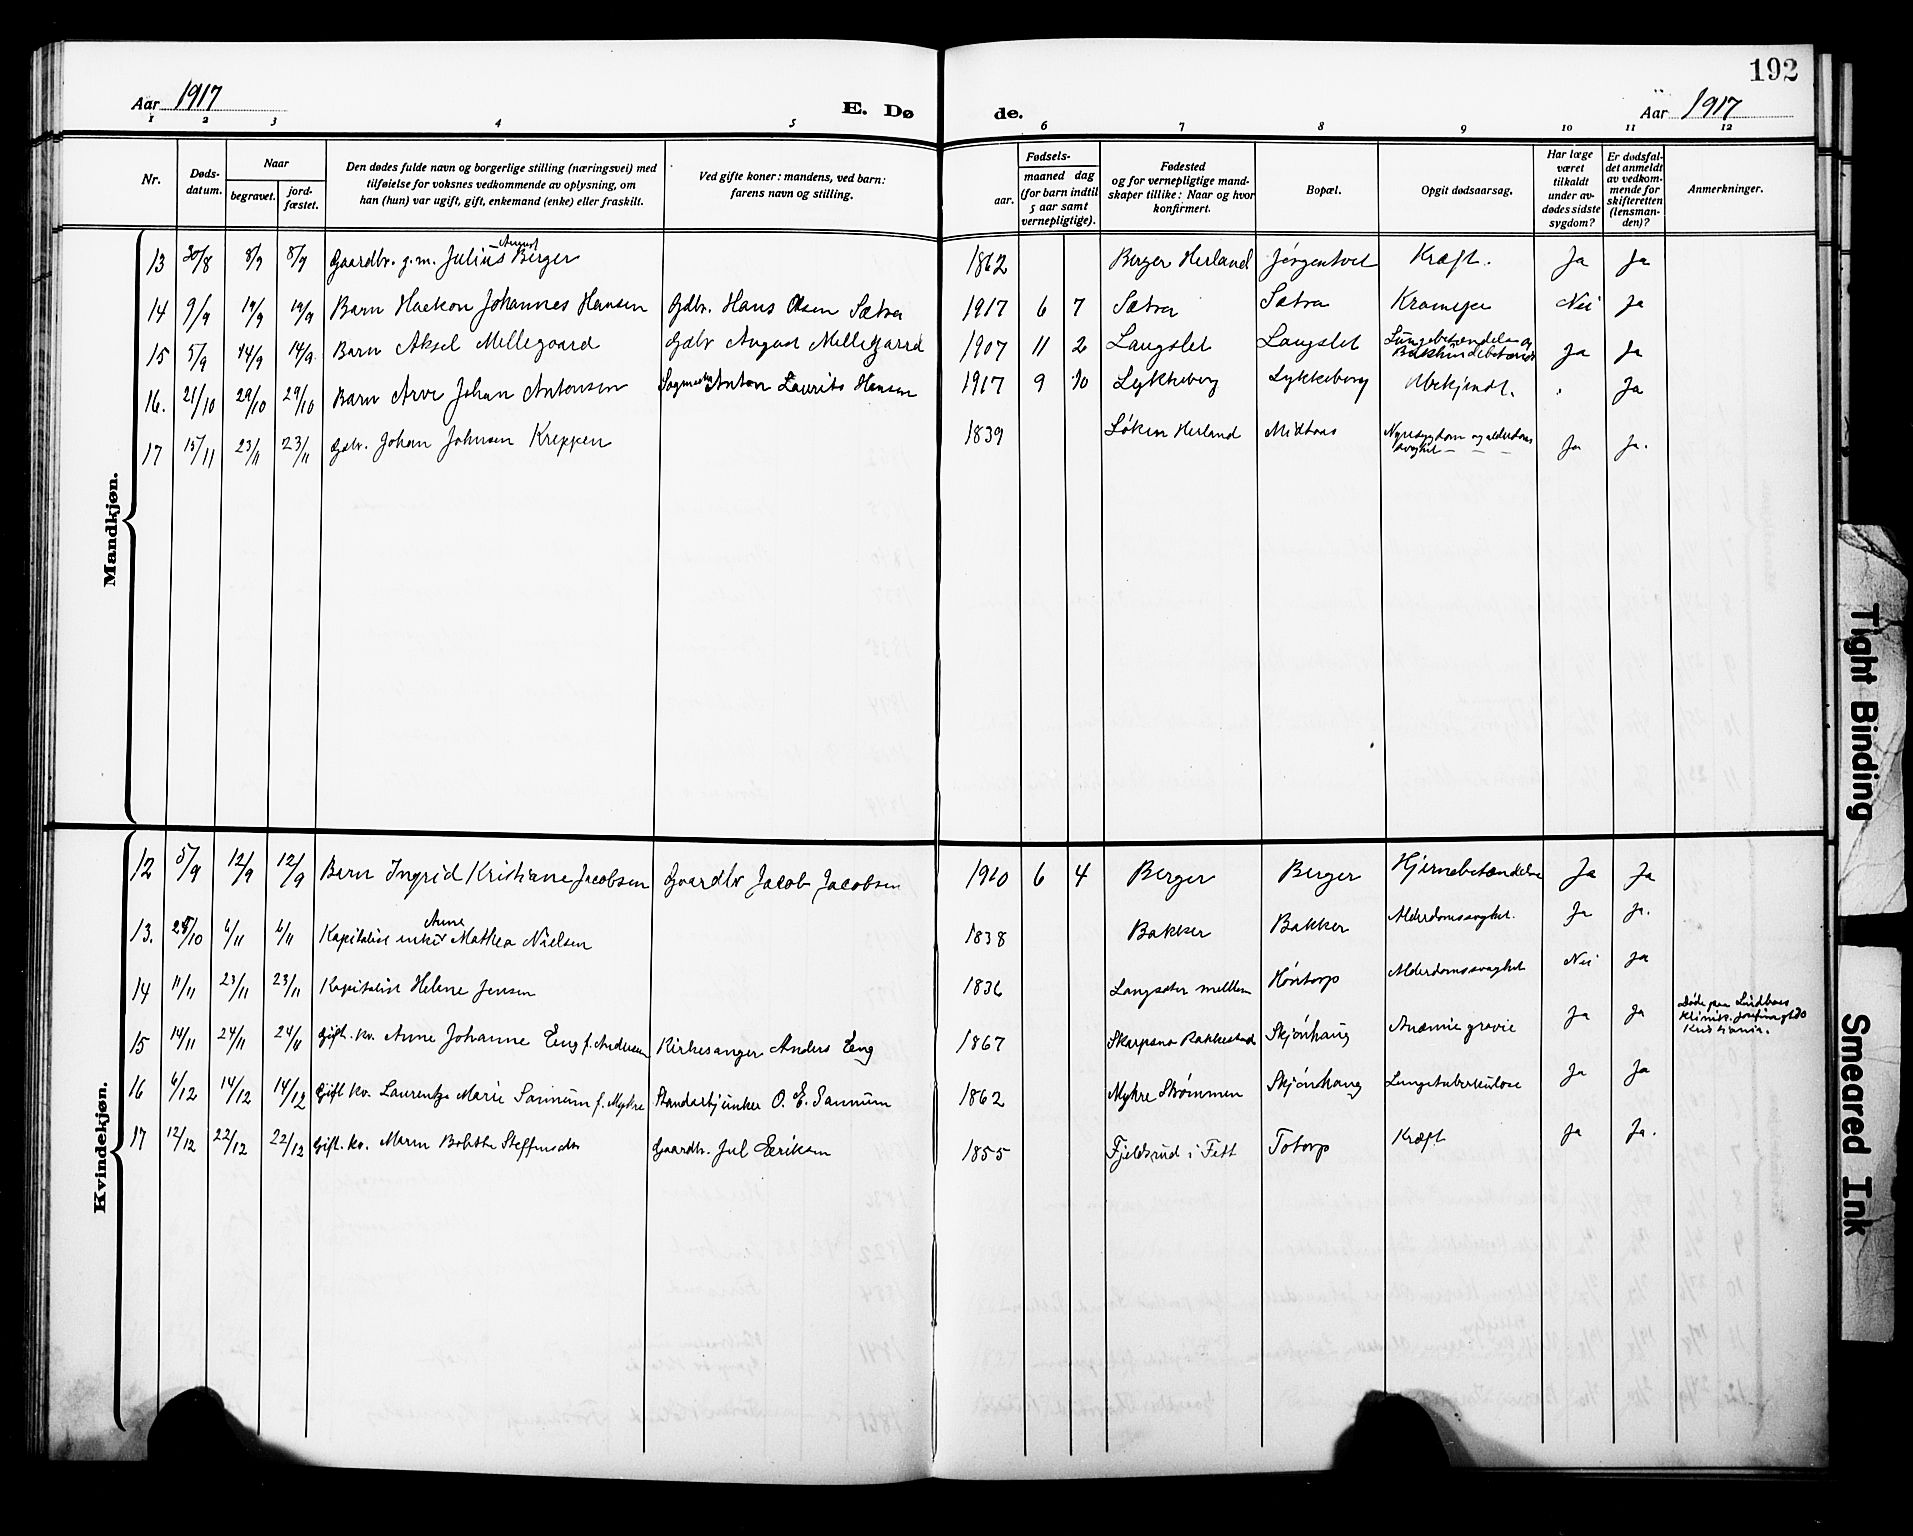 192
Aar 1917
E. Dø
de.
Aar 1917
1 2 3 4 5 6 7 8 9 10 11 12
Nr.
Døds-
datum.
Naar
begravet.
jord-
fæstet.
Den dødes fulde navn og borgerlige stilling (næringsvei) med
tilføielse for voksnes vedkommende av oplysning, om
han (hun) var ugift, gift, enkemand (enke) eller fraskilt.
Ved gifte koner: mandens, ved barn:
farens navn og stilling.
Fødsels-
aar.
maaned dag
(for barn indtil
5 aar samt
vernepligtige).
Fødested
og for vernepligtige mand-
skaper tillike: Naar og hvor
konfirmert.
Bopæl.
Opgit dødsaarsag.
Har læge
været
tilkaldt
under av-
dødes sidste
sygdom?
Er dødsfal-
det anmeldt
av vedkom-
mende for
skifteretten
(lensman-
den)?
Anmerkninger.
Mandkjøn.
13 30/8 8/9 8/9 Gaardbr. g.m. Julius August Berger 1862 Berger Herland Jørgentvet Kræft. Ja Ja
14 9/9 19/9 19/9 Barn Haakon Johannes Hansen Gdbr. Hans Olsen Sætra 1917 6 7 Sætra Sætra Krampe Nei Ja
15 5/9 14/9 14/9 Barn Aksel Mellegaard Gdbr August Mellegaard 1907 11 2 Langslet Langslet Lungebetændelse og Ja Ja
16. 21/10 29/10 29/10 Barn Arve Johan Antonsen Anton Laurits Hansen 1917 9 30 Lykkeberg Lykkeberg Ubekjendt. Ja
17 15/11 23/11 23/11 Gdbr. Johan Johnsen Kreppen 1839 Løken Herland Midtaas Nyresygdom og alderdoms
svaghet Ja Ja.
Kvindekjøn.
12 5/9 12/9 12/9 Barn Ingrid Kristiane Jacobsen Gaardbr Jacob Jacobsen 1910 6 4 Berger Berger Hjernebetændelse Ja Ja
13. 28/10 6/11 6/11 Kapitalist enke Anne Mathea Nielsen 1838 Bakker Bakker Alderdomssvaghet. Ja Ja.
14 11/11 23/11 23/11 Kapitalist Helene Jensen 1836 Langsæter mellem Høntorp Alderdomssvaghet Nei Ja
15 14/11 24/11 24/11 Gift. kv. Anne Johanne Eng f. Andersen Kirkesanger Anders Eng 1867 Skarpsno Rakkestad Skjønhaug Anæmie gravie Ja Ja Døde paa Lindboes
Klinik, Josefinegt 30
Kristiania.
16 6/12 14/12 14/12 Gift kv. Laurentze Marie Sannum f. Mykre Standartjunker O. E. Sannum 1862 Mykre Strømmen Skjønhaug Lungetuberkulose Ja Ja
17 12/12 22/12 22/12 Gift. kv. Maren Bolette Steffensdtr Gaardbr. Jul Eriksen 1855 Fjeldsrud i Fett Totorp Kræft Ja Ja.
Tight Binding
Smeared Ink